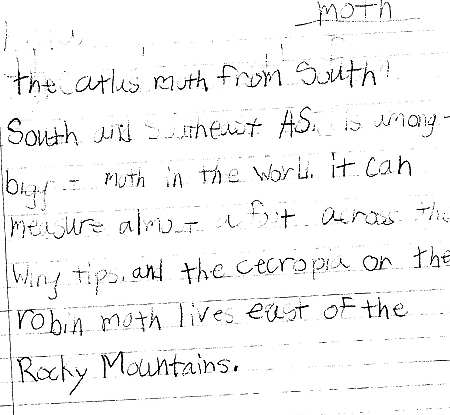 moth
the atlas moth from South
South and Southeast AS. is among
bigg st moth in the World. it can
measure almost a foot across the
Wing tips. and the cecropia or the
robin moth lives east of the
Rocky Mountains.